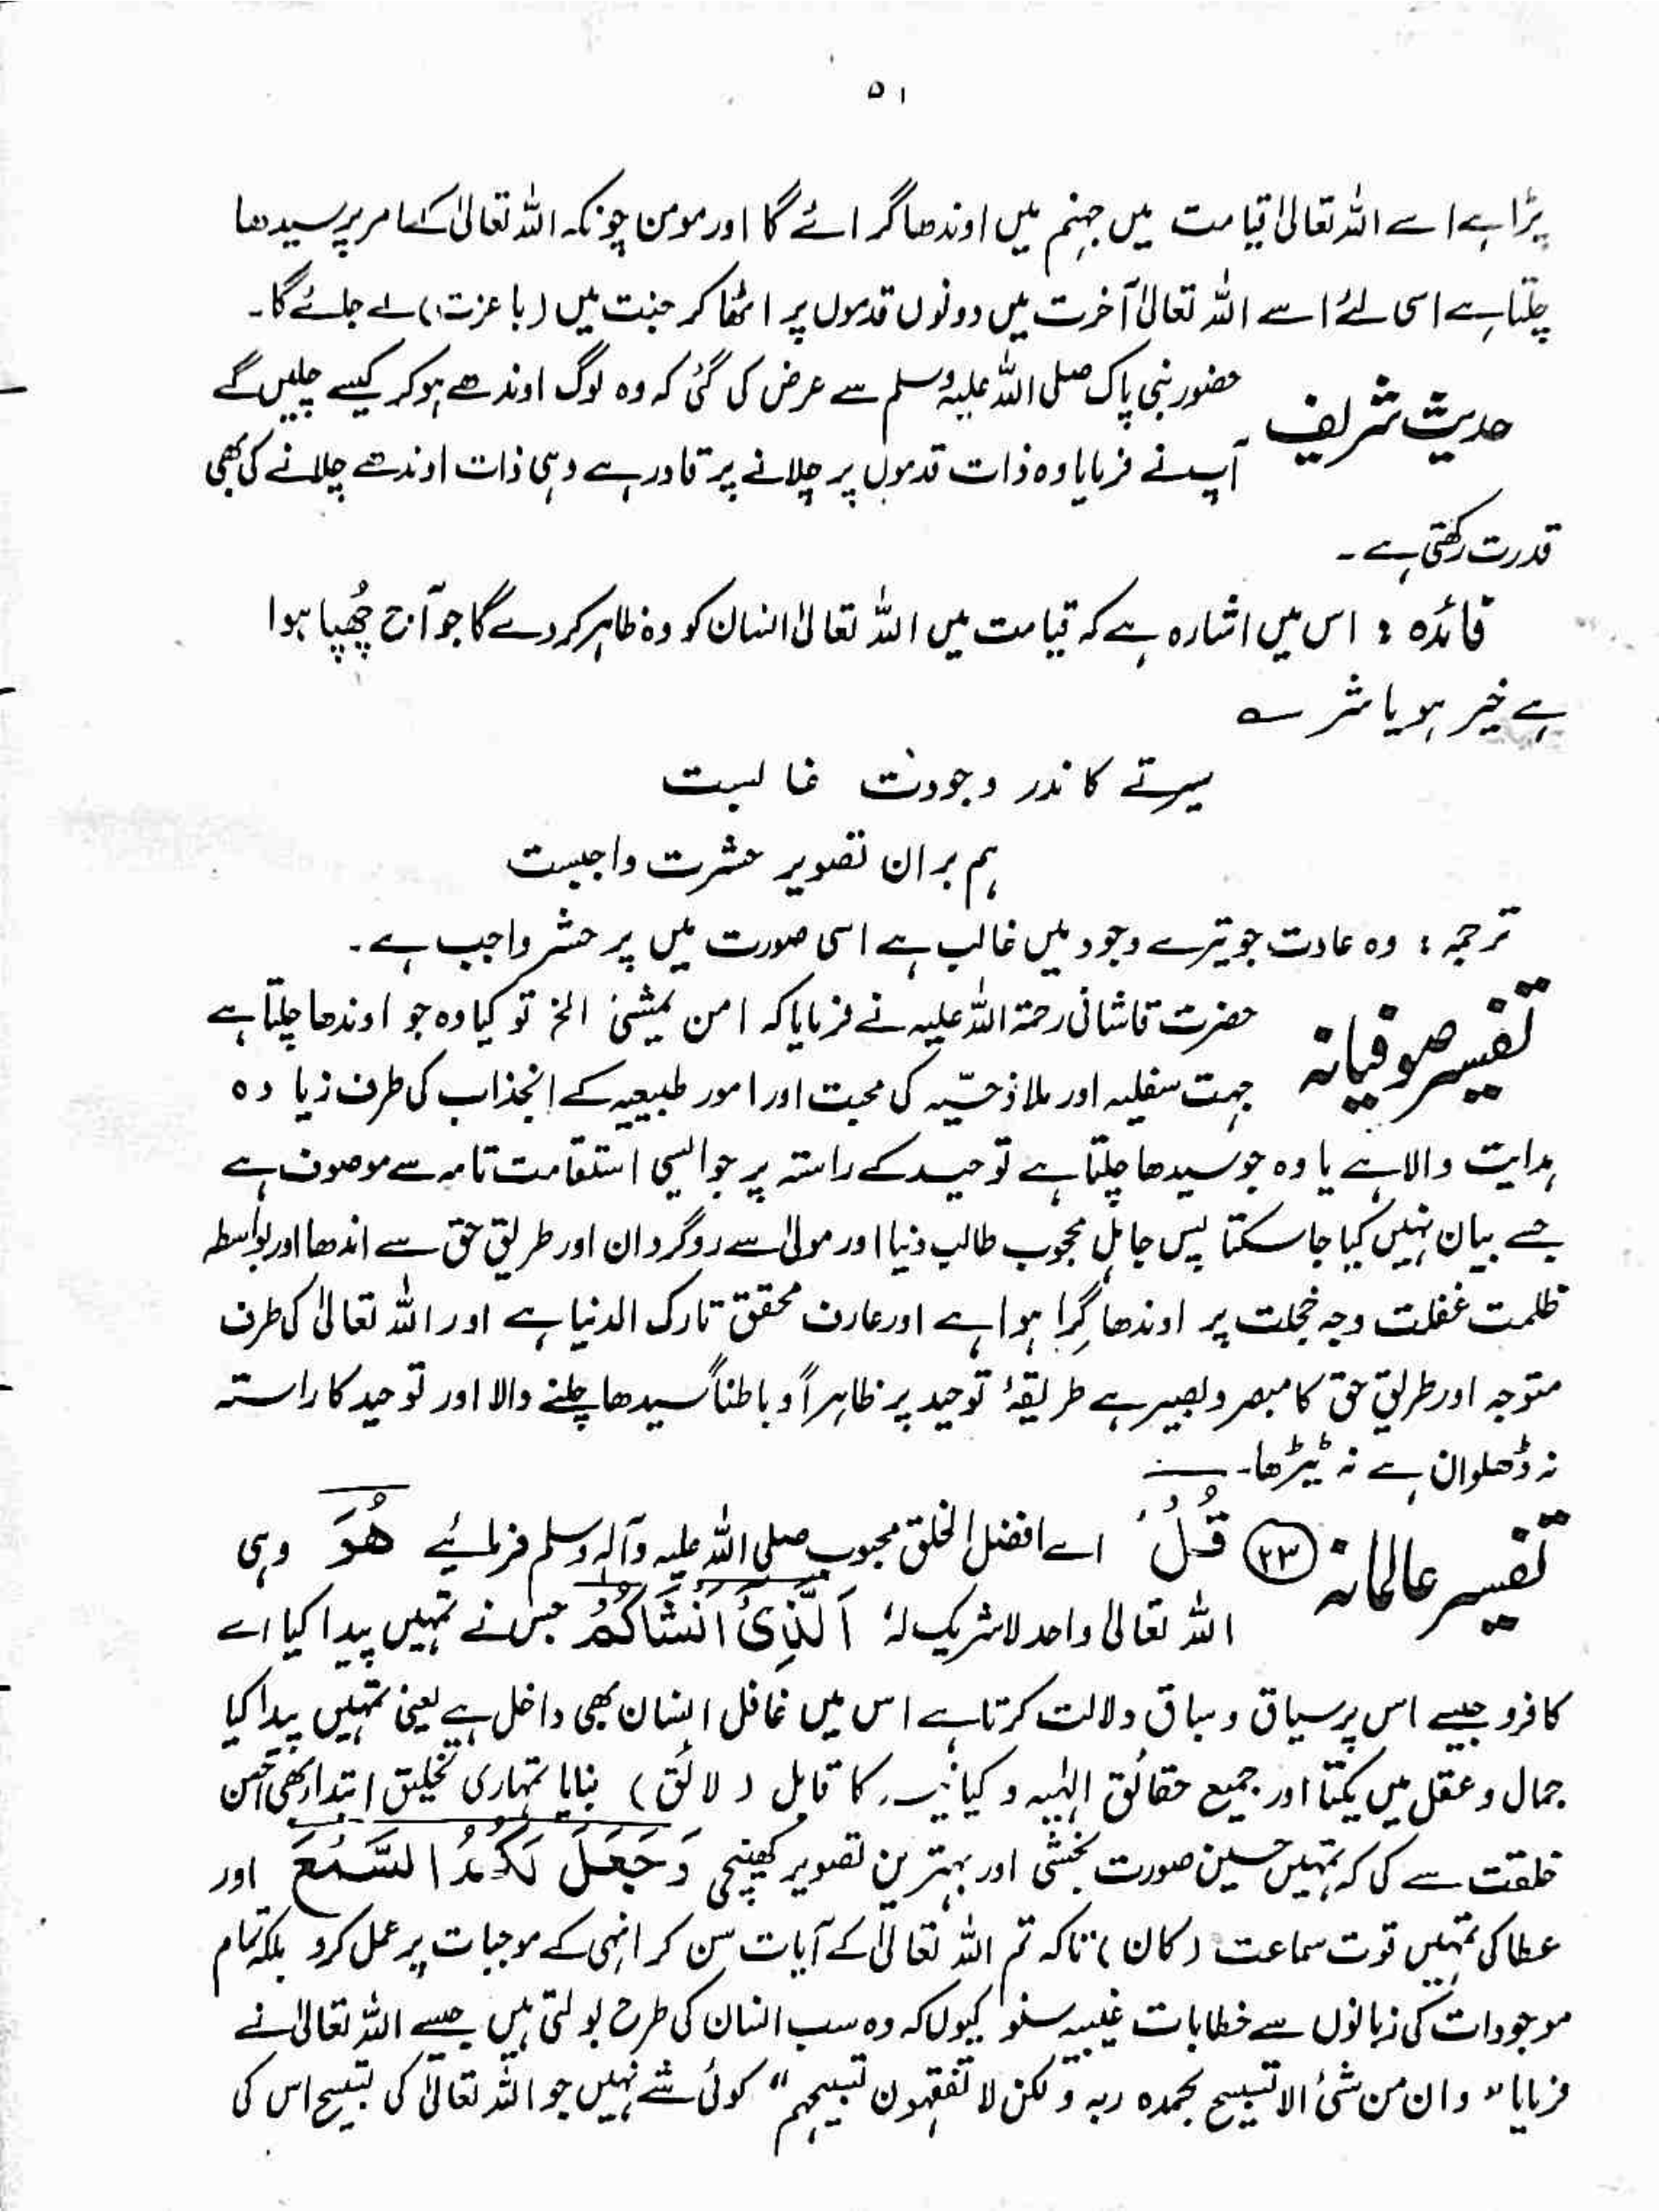 ۵۱
پڑا ہے اسے اللہ تعالیٰ قیامت میں جہنم میں اوندھا گرائے گا اور مومن چونکہ اللہ تعالیٰ کے امر پر سیدھا
چلتا ہے اسی لئے اسے اللہ تعالیٰ آخرت میں دونوں قدموں پر اٹھا کر جنت میں (باعزت) لے جائے گا۔
حدیث شریف حضور نبی پاک صلی اللہ علیہ وسلم سے عرض کی گئی کہ وہ لوگ اوندھے ہو کر کیسے چلیں گے
آپ نے فرمایا وہ ذات قدموں پر چلانے پر قادر ہے وہی ذات اوندھے چلانے کی بھی
قدرت رکھتی ہے۔
فائدہ : اس میں اشارہ ہے کہ قیامت میں اللہ تعالیٰ انسان کو وہ ظاہر کر دے گا جو آج چُھپا ہوا
ہے خیر ہو یا شر ؎
سیرتے کاندر وجودت غالبست
ہم بران تصویر حشرت واجبست
ترجمہ : وہ عادت جو تیرے وجود میں غالب ہے اسی صورت میں پر حشر واجب ہے۔
تفسیر صوفیانہ حضرت قاشانی رحمۃ اللہ علیہ نے فرمایا کہ امن یمشی الخ تو کیا وہ جو اوندھا چلتا ہے
جہت سفلیہ اور ملاذ حسّیہ کی محبت اور امور طبیعیہ کے انجذاب کی طرف زیادہ
ہدایت والا ہے یا وہ جو سیدھا چلتا ہے توحید کے راستہ پر جو ایسی استقامت تامہ سے موصوف ہے
جسے بیان نہیں کیا جا سکتا پس جاہل محجوب طالب دنیا اور مولیٰ سے روگردان اور طریق حق سے اندھا اور بواسطہ
ظلمت غفلت وجہ خجلت پر اوندھا گِرا ہوا ہے اور عارف محقق تارک الدنیا ہے اور اللہ تعالیٰ کی طرف
متوجہ اور طریق حق کا مبصر و بصیر ہے طریقۂ توحید پر ظاہراً و باطناً سیدھا چلنے والا اور توحید کا راستہ
نہ ڈھلوان ہے نہ ٹیڑھا۔
تفسیر عالمانہ ۲۳ قُلْ اے افضل الخلق محبوب صلی اللہ علیہ وآلہ وسلم فرمائیے هُوَ وہی
اللہ تعالیٰ واحد لاشریک لہٗ اَلَّذِیْٓ اَنْشَاَکُمْ جس نے تمہیں پیدا کیا اے
کافرو جیسے اس پر سیاق و سباق دلالت کرتا ہے اس میں غافل انسان بھی داخل ہے یعنی تمہیں پیدا کیا
جمال و عقل میں یکتا اور جمیع حقائق الٰہیہ و کیانیہ کا قابل (لائق) بنایا تمہاری تخلیق ابتداء بھی احسن
خلقت سے کی کہ تمہیں حسین صورت بخشی اور بہترین تصویر کھینچی وَجَعَلَ لَکُمُ السَّمْعَ اور
عطا کی تمہیں قوت سماعت (کان) تاکہ تم اللہ تعالیٰ کے آیات سن کر انہی کے موجبات پر عمل کرو بلکہ تمام
موجودات کی زبانوں سے خطابات غیبیہ سنو کیوں کہ وہ سب انسان کی طرح بولتی ہیں جیسے اللہ تعالیٰ نے
فرمایا ”وان من شیٔ الا تسبیح بحمدہ ربہ ولکن لا تفقہون تسبیحہم“ کوئی شے نہیں جو اللہ تعالیٰ کی تسبیح اس کی